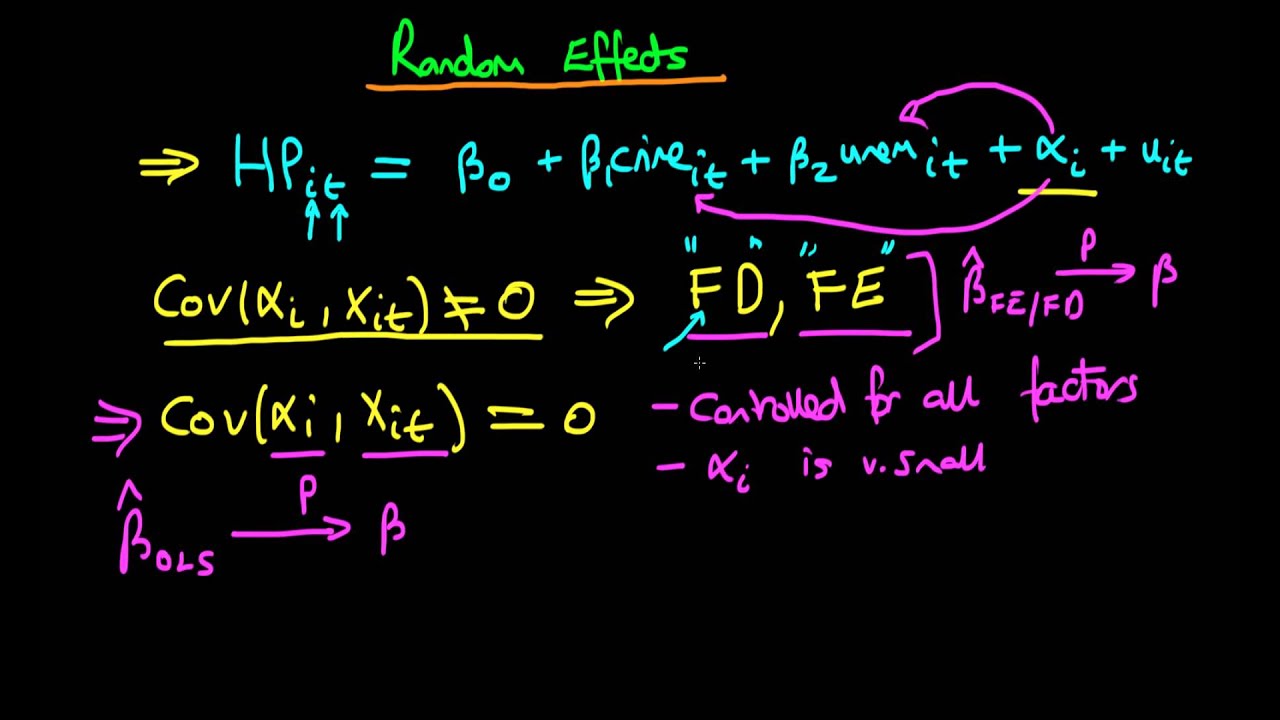 Random Effects
⇒ HPit = β0 + β1crimeit + β2unemit + αi + uit
Cov(αi, Xit) ≠ 0 ⇒ "FD", "FE" ] β̂FE/FD →p β
⇒ Cov(αi, Xit) = 0
- Controlled for all factors
- αi is v. small
β̂OLS →p β